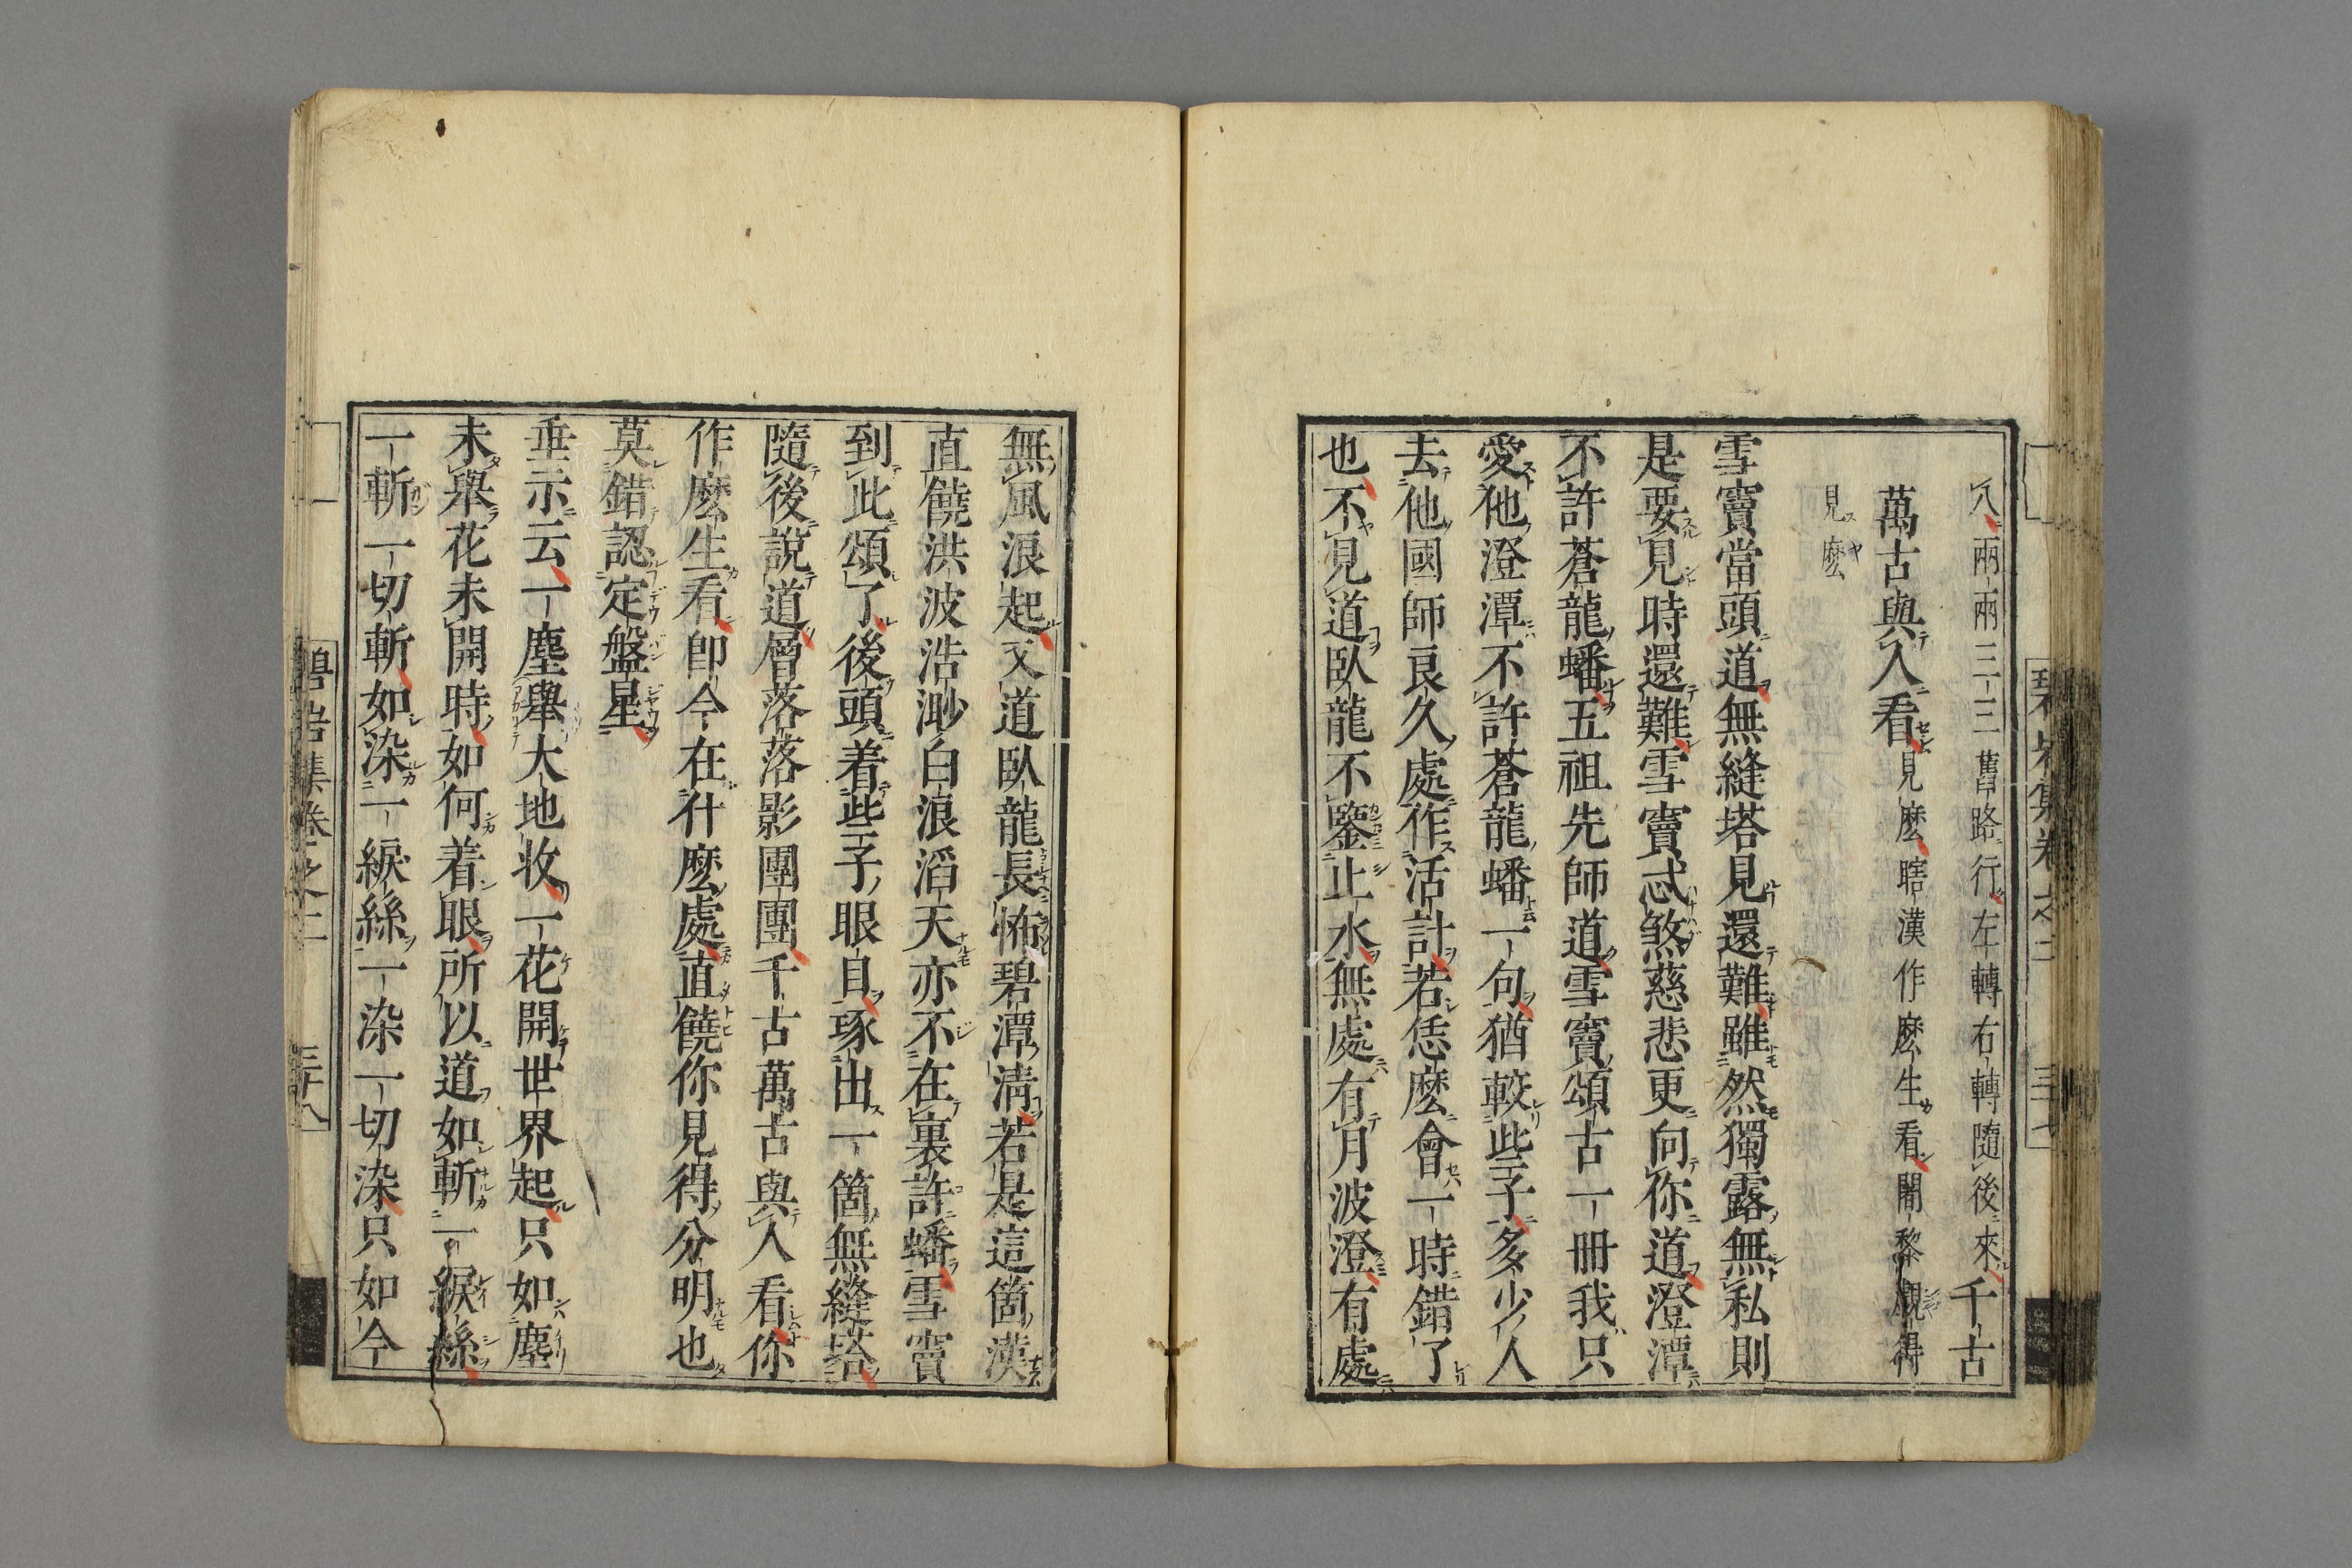 八兩兩三三舊路行左轉右轉隨後來千古
萬古與人看見麼瞎漢作麼生看闍黎覰得
見麼
雪竇當頭道無縫塔見還難雖然獨露無私則
是要見時還難雪竇忒煞慈悲更向你道澄潭
不許蒼龍蟠五祖先師道雪竇頌古一冊我只
愛他澄潭不許蒼龍蟠一句猶較些子多少人
去他國師良久處作活計若恁麼會一時錯了
也不見道臥龍不鑒止水無處有月波澄有處
碧岩集卷之二 三十七
無風浪起又道臥龍長怖碧潭淸若是這箇漢
直饒洪波浩渺白浪滔天亦不在裏許蟠雪竇
到此頌了後頭着些子眼目琢出一箇無縫塔
隨後說道層落落影團團千古萬古與人看你
作麼生看卽今在什麼處直饒你見得分明也
莫錯認定盤星
垂示云一塵擧大地收一花開世界起只如塵
未擧花未開時如何着眼所以道如斬一綟絲
一斬一切斬如染一綟絲一染一切染只如今
碧岩集卷之二 三十八